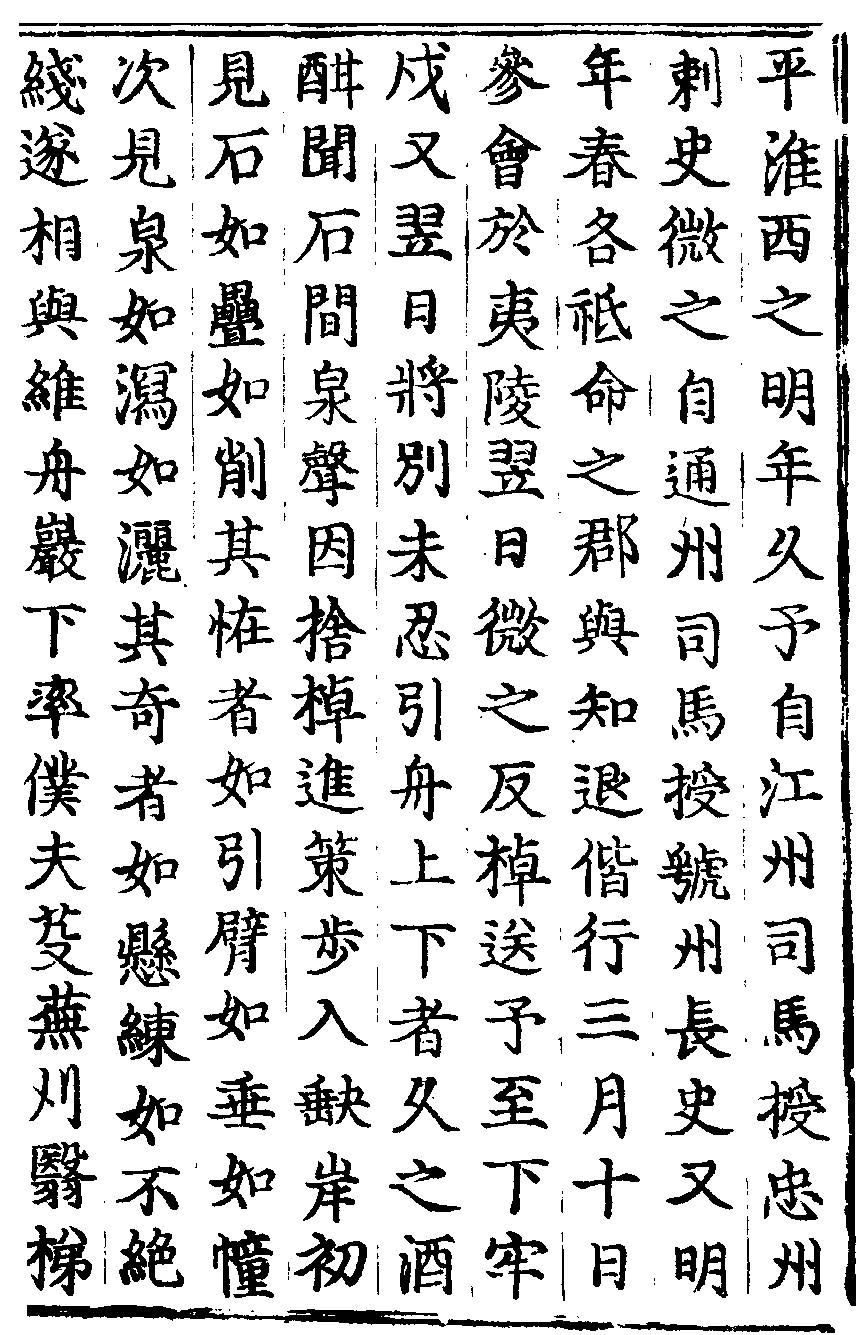 平淮西之明年久予自江州司馬授忠州
剌史微之自通州司馬授虢州長史又明
年春各祗命之郡與知退偕行三月十日
參會於夷陵翌日微之反棹送予至下牢
戍又翌日將別未忍引舟上下者久之酒
酣聞石間泉聲因捨棹進策步入缺岸初
見石如疊如削其恠者如引臂如垂如幢
次見泉如瀉如灑其奇者如懸練如不絕
綫遂相與維舟巖下率僕夫芟蕪刈翳梯